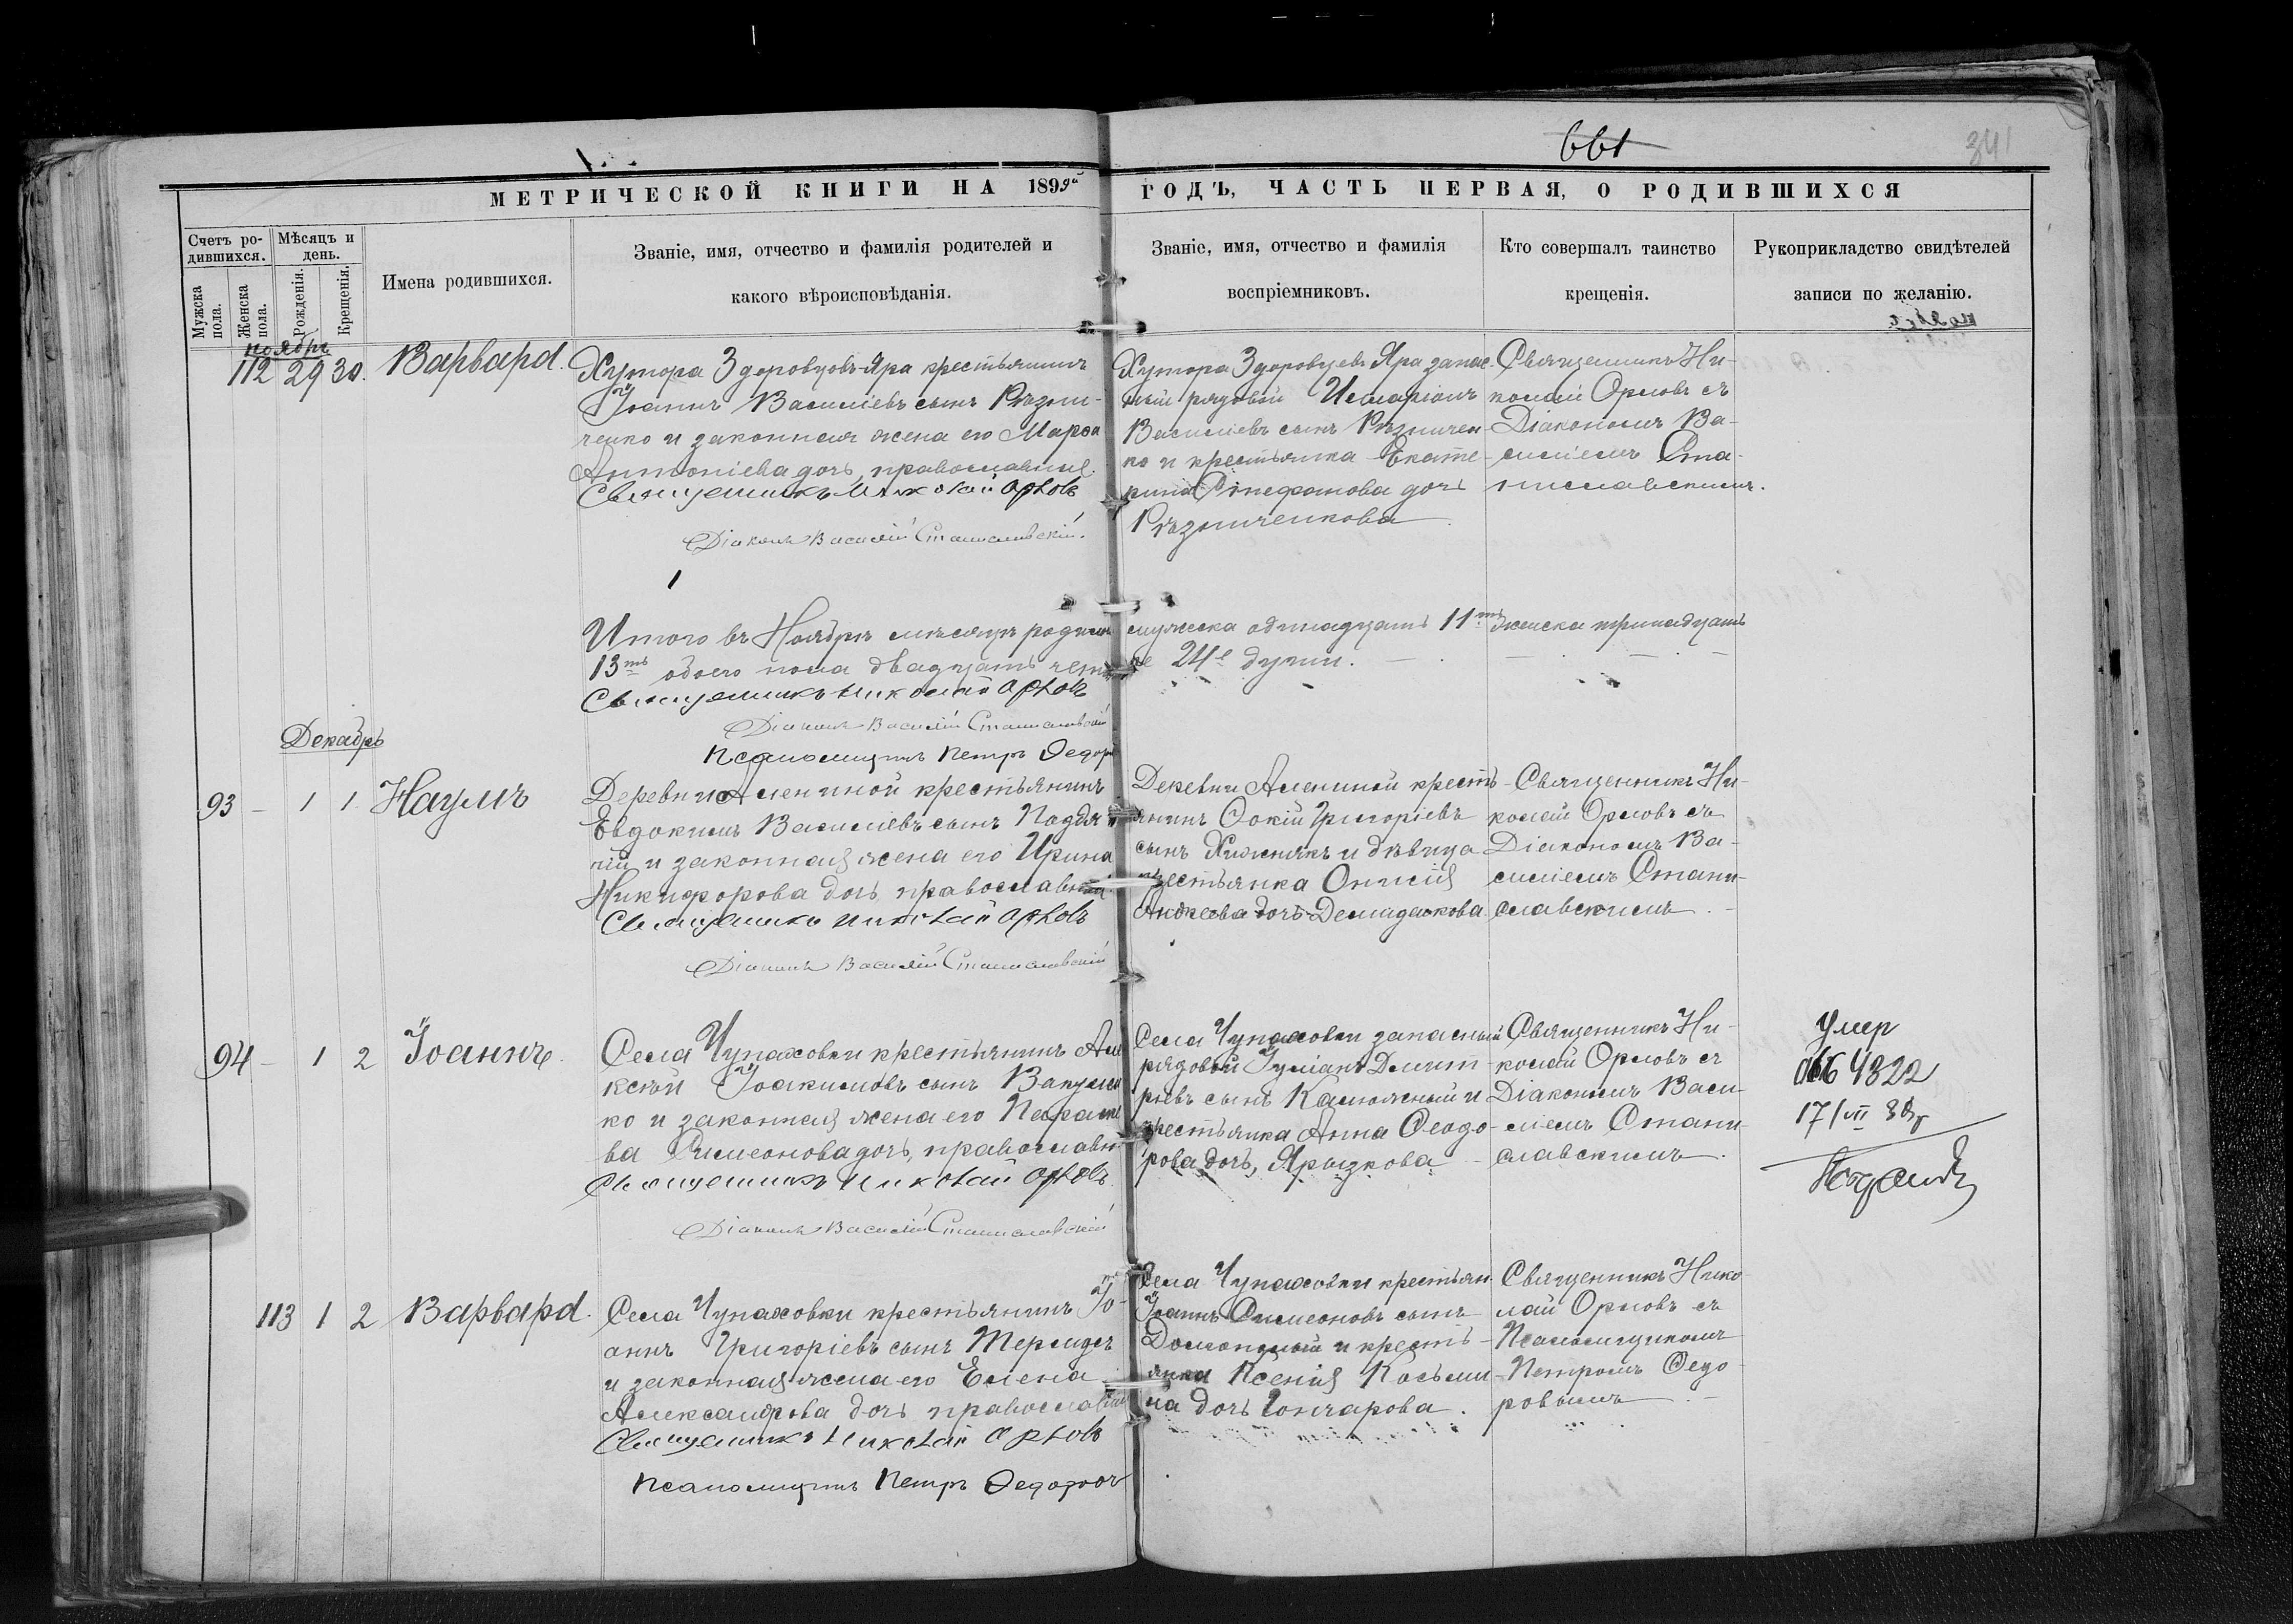 661
341
МЕТРИЧЕСКОЙ КНИГИ НА 1899й ГОДЪ, ЧАСТЬ ПЕРВАЯ, О РОДИВШИХСЯ
Счетъ ро-
дившихся.
Мужска пола.
Женска пола.
Мѣсяцъ и
день.
Рожденія.
Крещенія.
Имена родившихся.
Званіе, имя, отчество и фамилія родителей и
какого вѣроисповѣданія.
Званіе, имя, отчество и фамилія
воспріемниковъ.
Кто совершалъ таинство
крещенія.
Рукоприкладство свидѣтелей
записи по желанію.
ноябрь
112 29 30. Варвара.
Хутора Здоровцовъ-Яра крестьянинъ
Іоаннъ Василіевъ сынъ Рѣзни-
ченко и законная жена его Марѳа
Антоніева дочь, православные.
Священникъ Николай Орловъ
Діаконъ Василій Станиславскій.
Хутора Здоровцевъ Яра запас-
ный рядовой Иларіонъ
Василіевъ сынъ Рѣзничен-
ко и крестьянка Екате-
рина Стефанова дочь
Рѣзниченкова
Священникъ Ни-
колай Орловъ съ
Діакономъ Ва-
силіемъ Ста-
ниславскимъ.
Итого въ Ноябрѣ мѣсяцѣ родилось мужска одинадцать 11ть женска тринадцать
13ть обоего пола двадцать четыре 24е души.
Священникъ Николай Орловъ
Діаконъ Василій Станиславскій
Псаломщикъ Петръ Ѳедоровъ
Декабрь
93 - 1 1. Наумъ
Деревни Алениной крестьянинъ
Евдокимъ Василіевъ сынъ
и законная жена его Ирина
Никифорова дочь, православные.
Священникъ Николай Орловъ
Діаконъ Василій Станиславскій
Деревни Алениной кресть-
янинъ Ѳокій Григоріевъ
сынъ Хижнякъ и дѣвица
крестьянка Онисія
Андреева дочь
Священникъ Ни-
колай Орловъ съ
Діакономъ Ва-
силіемъ Стани-
славскимъ.
94 - 1 2 Іоаннъ.
Села Чупаховки крестьянинъ Але-
ксѣй Іоакимовъ сынъ Вакулен-
ко и законная жена его Параске-
ва Симеонова дочь, православные
Священникъ Николай Орловъ
Діаконъ Василій Станиславскій
Села Чупаховки запасный
рядовой Іуліанъ Димит-
ріевъ сынъ и
крестьянка Анна Ѳеодо-
рова дочь, Ярызкова
Священникъ Ни-
колай Орловъ съ
Діакономъ Васи-
ліемъ Стани-
славскимъ.
Умер
4322
17/VII
113 1 2 Варвара.
Села Чупаховки крестьянинъ Іо-
аннъ Григоріевъ сынъ
и законная жена его Елена
Александрова дочь православные
Священникъ Николай Орловъ
Псаломщикъ Петръ Ѳедоровъ
Села Чупаховки крестьян.
Іоаннъ Симеоновъ сынъ
и кресть-
янка Ксенія Косьми-
на дочь Гончарова.
Священникъ Нико-
лай Орловъ съ
Псаломщикомъ
Петромъ Ѳедо-
ровымъ